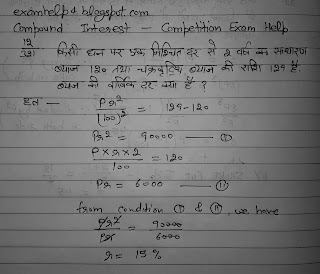 examhelp4.blogspot.com
Compound Interest - Competition Exam Help
किसी धन पर एक निश्चित दर से 2 वर्ष का साधारण
ब्याज 120 तथा चक्रवृद्धि ब्याज की राशि 129 है.
ब्याज की वार्षिक दर क्या है ?
हल — Pr² / (100)² = 129-120
Pr² = 90000 — (I)
P×r×2 / 100 = 120
Pr = 6000 — (II)
from condition (I) & (II), we have
Pr² / Pr = 90000 / 6000
r = 15 %